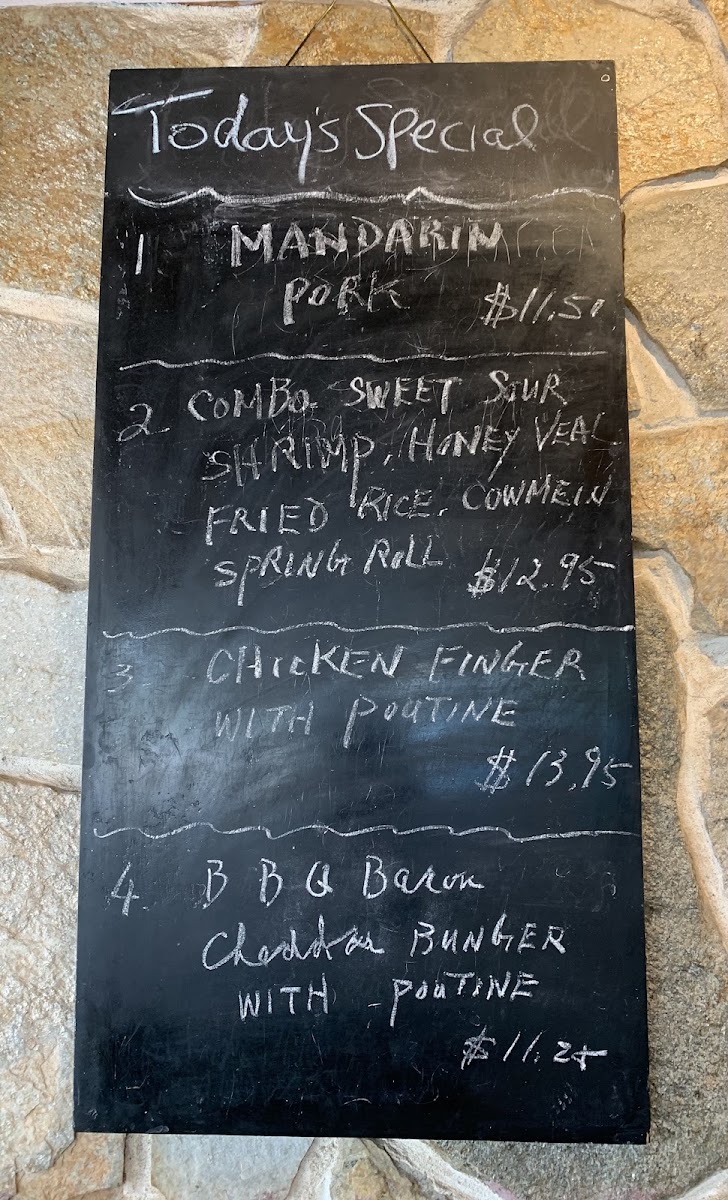 Today's Special
1 MANDARIN
PORK $11.50
2 COMBO SWEET SOUR
SHRIMP, HONEY VEAL
FRIED RICE, COWMEIN
SPRING ROLL $12.95
3 CHICKEN FINGER
WITH POUTINE
$13.95
4 B B Q Bacon
Cheddar BUNGER
WITH POUTINE
$11.25